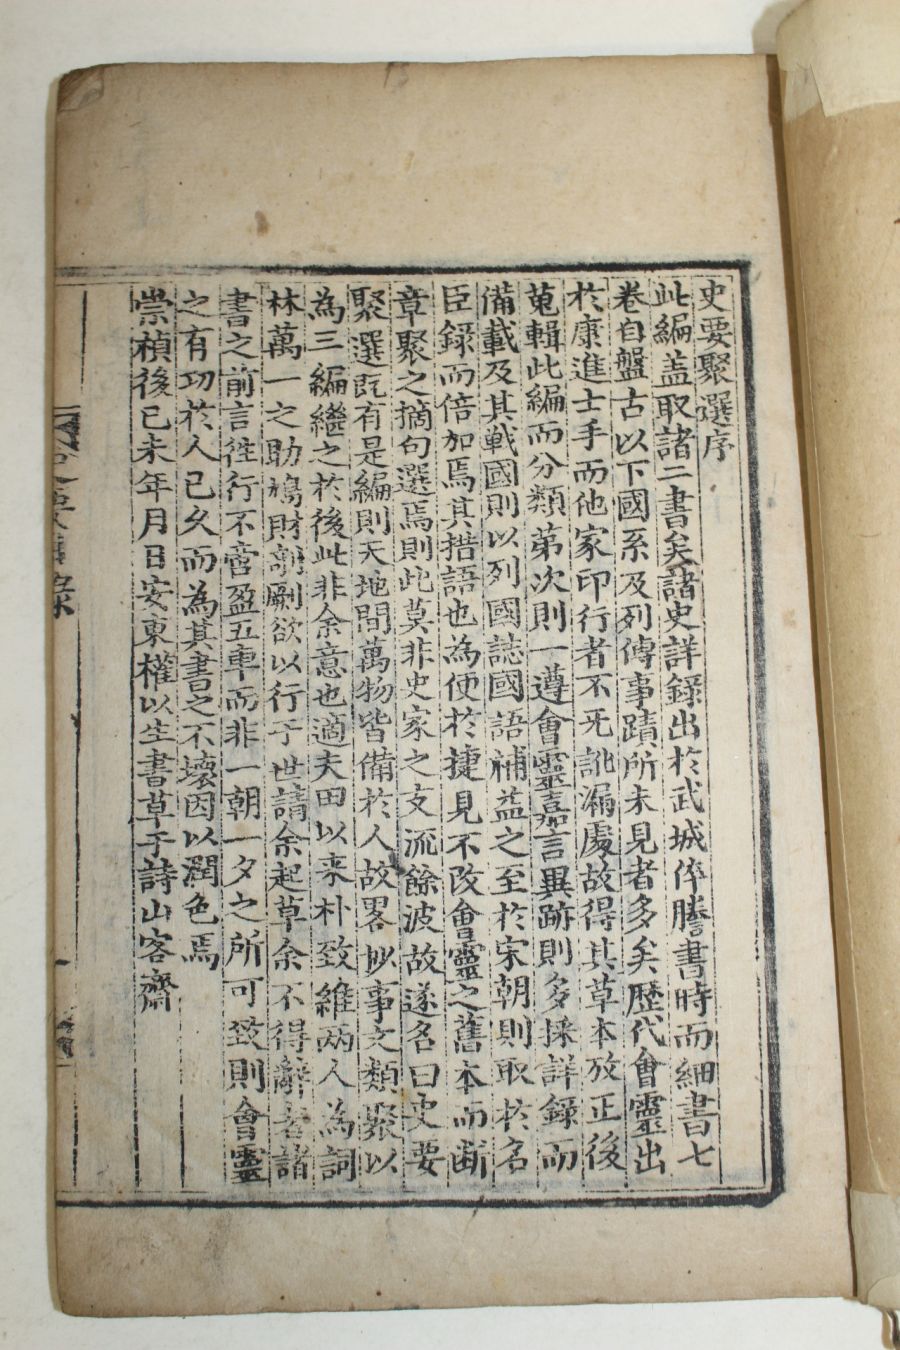 史要聚選序
此編盖取諸二書矣諸史詳錄出於武城倅謄書時而細書七
卷自盤古以下國系及列傳事蹟所未見者多矣歷代會靈出
於康進士手而他家印行者不旡訛漏處故得其草本攷正後
蒐輯此編而分類第次則一遵會靈嘉言異跡則多採詳錄而
備載及其戰國則以列國誌國語補益之至於宋朝則取於名
臣錄而倍加焉其措語也為便於捷見不改會靈之舊本而斷
章聚之摘句選焉則此莫非史家之支流餘波故遂名曰史要
聚選旣有是編則天地間萬物皆備於人故畧抄事文類聚以
為三編繼之於後此非余意也適夫田以来朴致維两人為詞
林萬一之助鳩財剞劂欲以行于世請余起草余不得辭者諸
書之前言徃行不啻盈五車而非一朝一夕之所可致則會靈
之有功於人已久而為其書之不壞因以潤色焉
崇禎後己未年月日安東權以生書草于詩山客齋